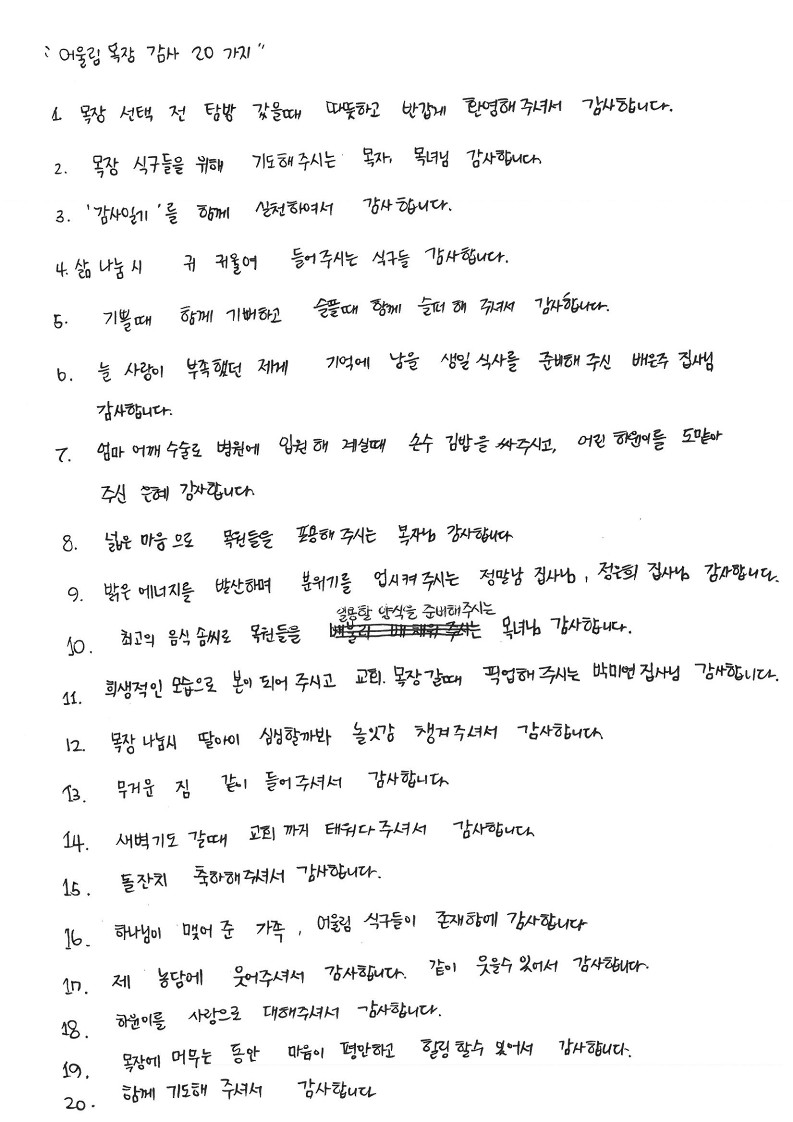 "어울림 목장 감사 20 가지"
1. 목장 선택 전 탐방 갔을때 따뜻하고 반갑게 환영해주셔서 감사합니다.
2. 목장 식구들을 위해 기도해주시는 목자, 목녀님 감사합니다.
3. '감사일기'를 함께 실천하여서 감사합니다.
4. 삶 나눔시 귀 기울여 들어주시는 식구들 감사합니다.
5. 기쁠때 함께 기뻐하고 슬플때 함께 슬퍼해 주셔서 감사합니다.
6. 늘 사랑이 부족했던 제게 기억에 남을 생일 식사를 준비해 주신 배은주 집사님
감사합니다.
7. 엄마 어깨 수술로 병원에 입원해 계실때 손수 김밥을 싸주시고, 어린 하윤이를 도맡아
주신 은혜 감사합니다.
8. 넓은 마음으로 목원들을 포용해 주시는 목자님 감사합니다
9. 밝은 에너지를 발산하며 분위기를 업시켜주시는 정말남 집사님, 정은희 집사님 감사합니다.
일용할 양식을 준비해주시는
10. 최고의 음식 솜씨로 목원들을 목녀님 감사합니다.
11. 희생적인 모습으로 본이 되어 주시고 교회. 목장갈때 픽업해 주시는 박미연 집사님 감사합니다.
12. 목장 나눔시 딸아이 심심할까봐 놀잇감 챙겨주셔서 감사합니다.
13. 무거운 짐 같이 들어주셔서 감사합니다.
14. 새벽기도 갈때 교회까지 태워다 주셔서 감사합니다.
15. 돌잔치 축하해주셔서 감사합니다.
16. 하나님이 맺어 준 가족, 어울림 식구들이 존재함에 감사합니다
17. 제 농담에 웃어주셔서 감사합니다. 같이 웃을수 있어서 감사합니다.
18. 하윤이를 사랑으로 대해주셔서 감사합니다.
19. 목장에 머무는 동안 마음이 평안하고 힐링할수 있어서 감사합니다.
20. 함께 기도해 주셔서 감사합니다